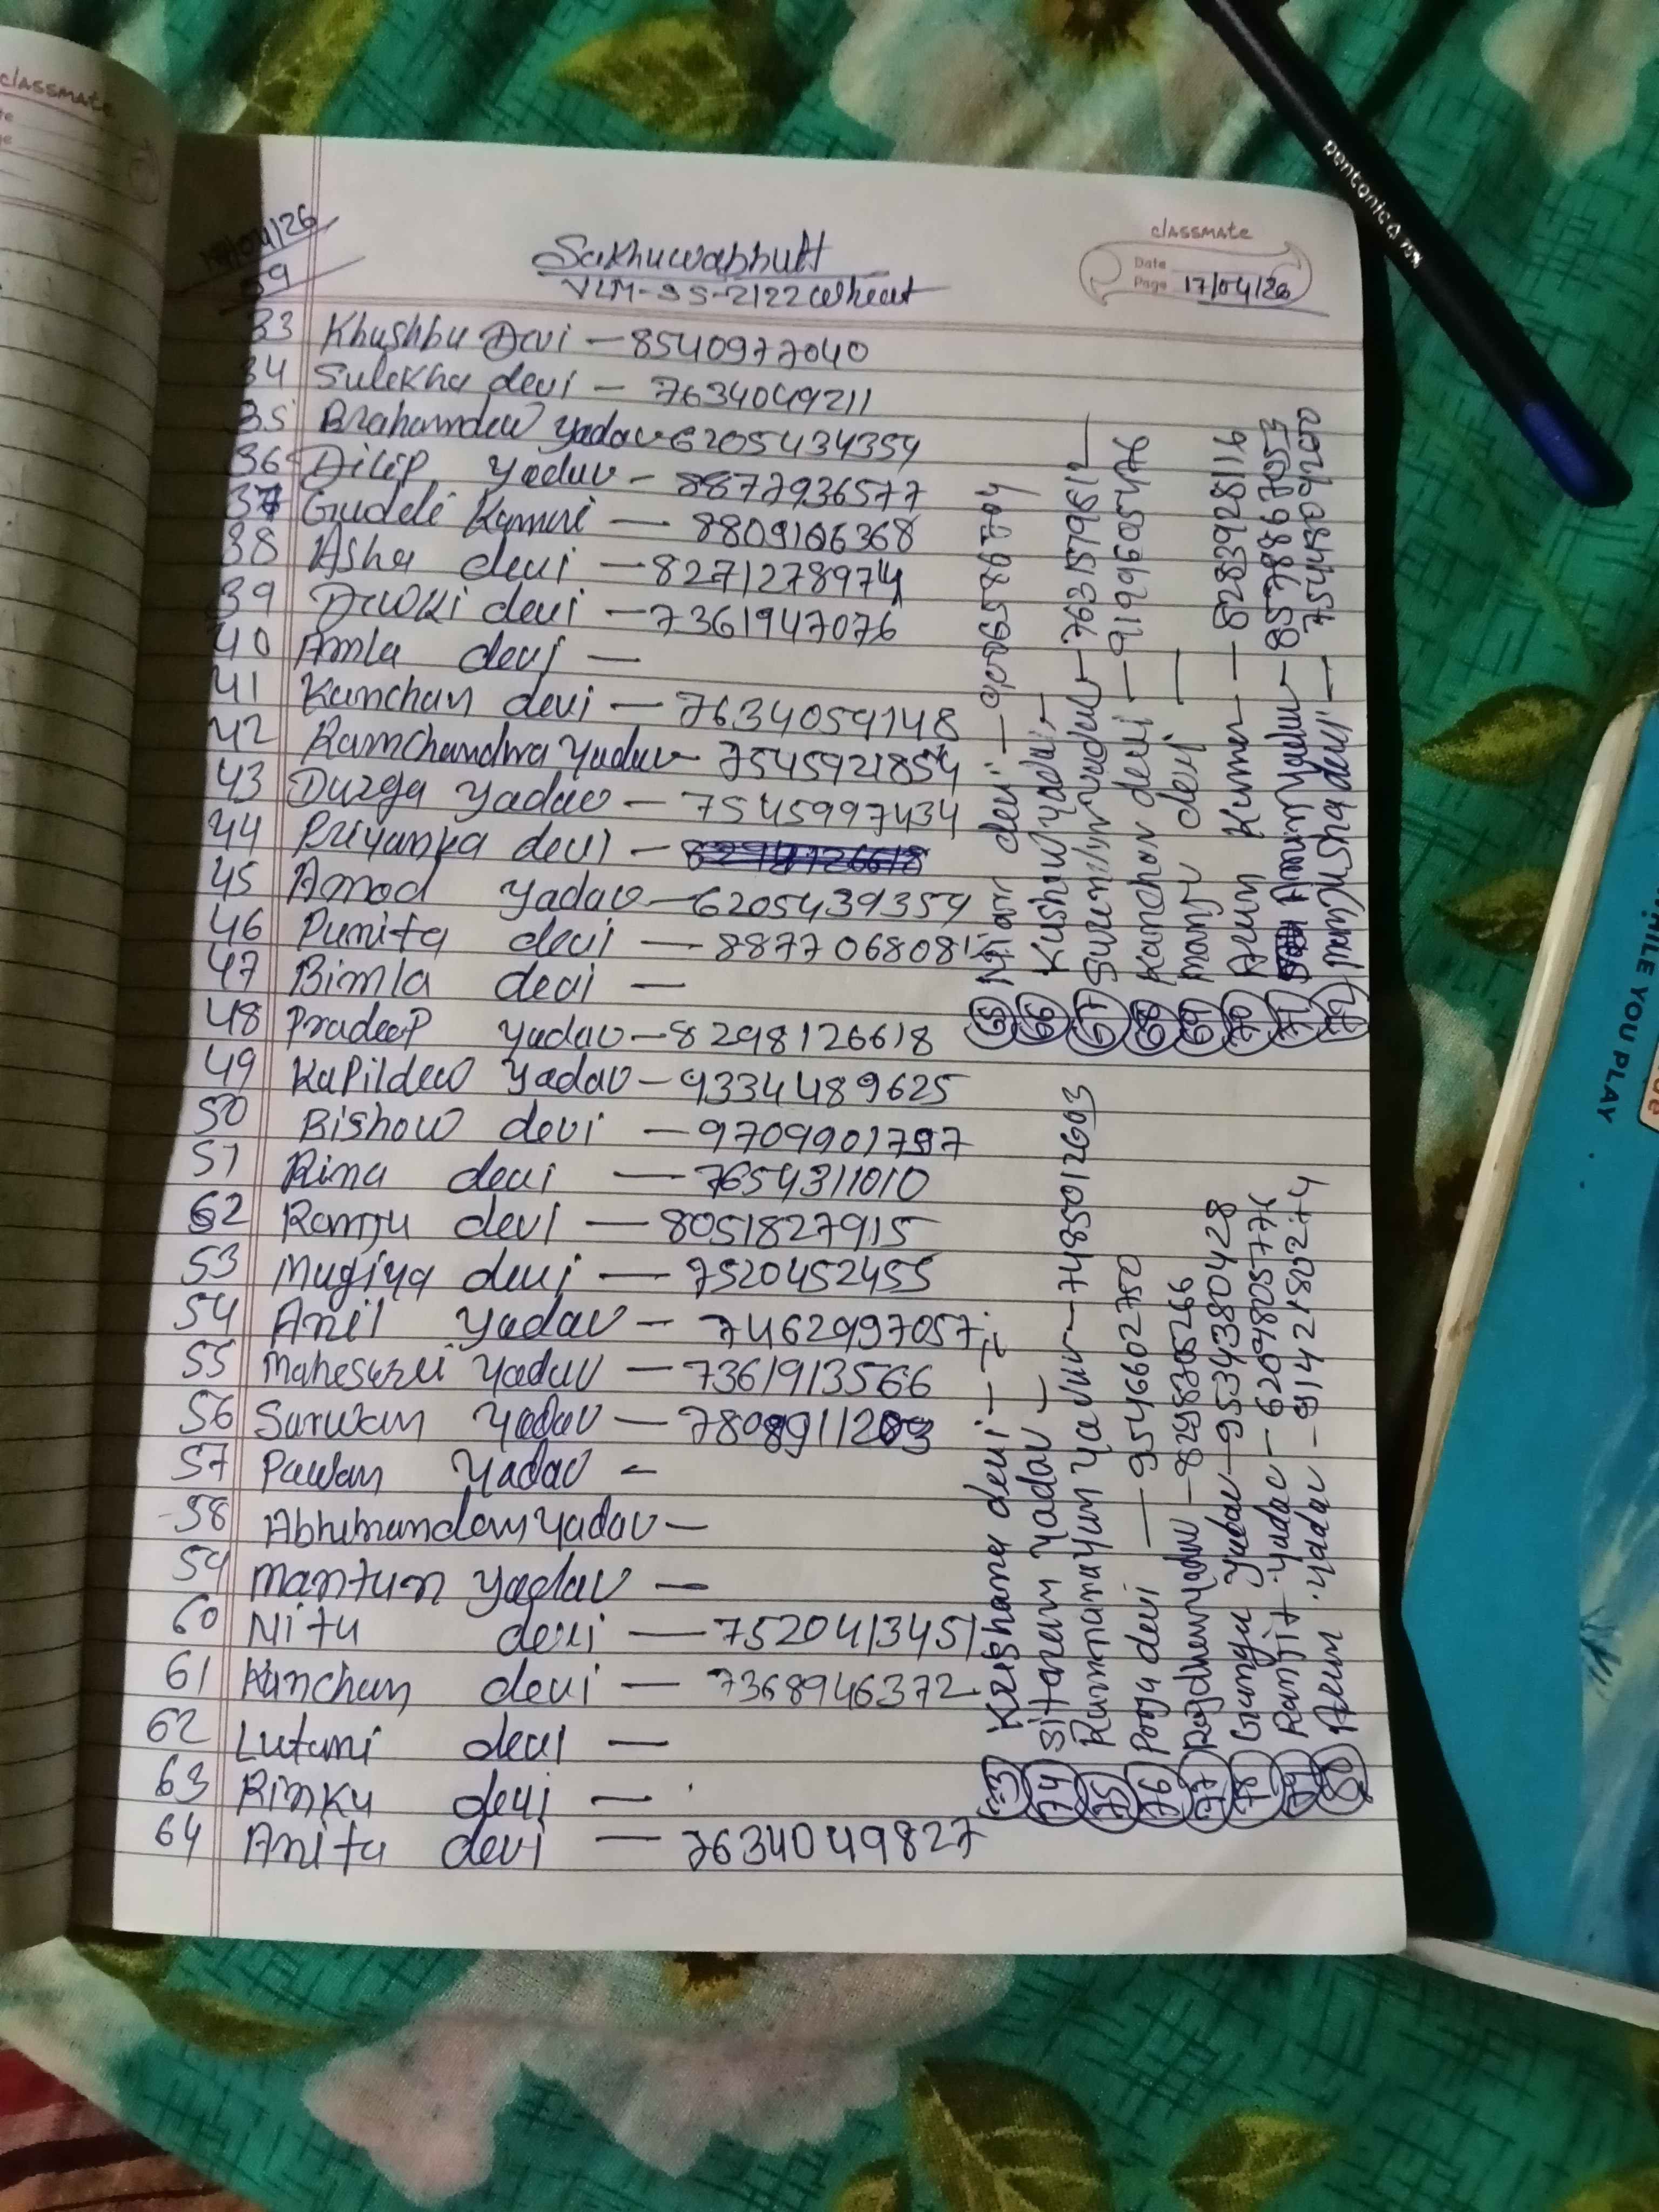 classmate
17/04/26
59
Sakhuwabhutt
VLM-SS-2122 Wheat
classmate
Date
Page 17/04/26
33 Khushbu Devi – 8540977040
34 Sulekha devi – 7634049211
35 Brahamdew yadav – 6205434354
36 Dilip yadav – 8877936577
37 Guddi Kumari — 8809106368
38 Asha devi – 8271278974
39 Dewki devi – 7361947076
40 Amla devi –
41 Kanchan devi – 7634059148
42 Ramchandra yadav – 7545921854
43 Durga yadav – 7545997434
44 Priyanka devi –
45 Amod yadav – 6205439354
46 Punita devi — 8877068081
47 Bimla devi —
48 Pradeep yadav – 8298126618
49 Kapildew yadav – 9334489625
50 Bishow devi – 9709901797
51 Rina devi — 7654311010
62 Ramju devi — 8051827915
53 Mugiya devi — 7520452455
54 Anil yadav – 7462997057
55 Maheswri yadav – 7361913566
56 Sarwan yadav – 7808911203
57 Pawan yadav –
58 Abhimandan yadav –
59 Mantun yadav –
60 Nitu devi — 7520413451
61 Kanchan devi – 7368946372
62 Lutani devi —
63 Rinku devi —
64 Anita devi — 7634049827
65 devi –
66 Kushwn yadav –
67 yadav – 763157981
68 Kanchan devi – 9199605476
69 manju devi —
70 Arun Kumar – 8283928116
71 yadav – 8578867053
72 manjusha devi – 7544809200
73 Krishana devi –
74 Sitaram yadav –
75 Ramnarayan yadav – 7485012603
76 Pooja devi — 9546602750
77 yadav – 8298305266
78 yadav – 9534380428
79 Ranjit yadav – 6209480577
80 Arun yadav – 9142180274
Pentonic
WHILE YOU PLAY